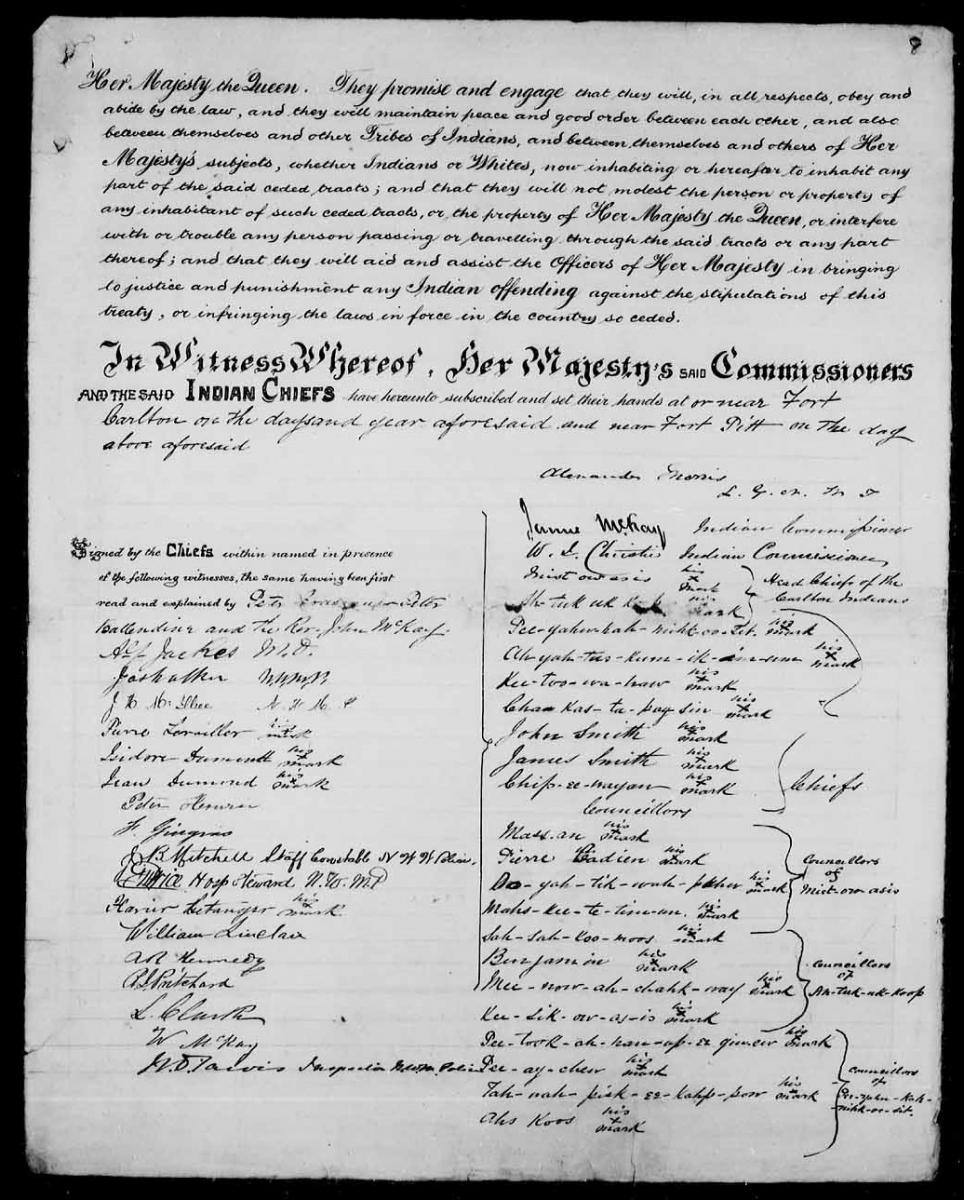 8
Her Majesty the Queen. They promise and engage that they will, in all respects, obey and
abide by the law, and they will maintain peace and good order between each other, and also
between themselves and other Tribes of Indians, and between themselves and others of Her
Majesty's subjects, whether Indians or Whites, now inhabiting or hereafter to inhabit any
part of the said ceded tracts; and that they will not molest the person or property of
any inhabitant of such ceded tracts, or the property of Her Majesty the Queen, or interfere
with or trouble any person passing or travelling through the said tracts or any part
thereof; and that they will aid and assist the Officers of Her Majesty in bringing
to justice and punishment any Indian offending against the stipulations of this
treaty, or infringing the laws in force in the country so ceded.
In Witness Whereof, Her Majesty's said Commissioners
and the said Indian Chiefs have hereunto subscribed and set their hands at or near Fort
Carlton on the days and year aforesaid and near Fort Pitt on the day
above aforesaid
Signed by the Chiefs within named in presence
of the following witnesses, the same having been first
read and explained by Peter Erasmus Peter
Ballendine and the Rev. John McKay.
A. Jackes M.D.
Jos Walker N.W.M.P.
J H McIllree N.W.M.P
Pierre Levailler his x mark
Isidore Dumond his x mark
Jean Dumond his x mark
Peter
F. Gingras
J B Mitchell Staff Constable N W M Police,
Hosp Steward N.W.M.P
Xavier Letanger his x mark
William Sinclair
A R Kennedy
R J Pritchard
L. Clarke
W McKay
W D Jarvis Inspector N.W.M. Police
Alexander Morris
L. G. N. W. T
James McKay Indian Commissioner
W. J. Christie Indian Commissioner
Mist-ow-asis his x mark
Ah-tuk-uk-koop his x mark
Head Chiefs of the
Carlton Indians
Pee-yahn-kah-nihk-oo-sit his x mark
Ah-yah-tus-kum-ik-im-um his x mark
Kee-too-wa-haw his x mark
Cha-kas-ta-pay-sin his x mark
John Smith his x mark
James Smith his x mark
Chip-ee-wayan his x mark
Chiefs
Councillors
Mass-an his x mark
Pierre Cadien his x mark
Oo-yah-tik-wah-pahn his x mark
Mahs-kee-te-tim-un. his x mark
Councillors
of
Mist-ow-asis
Sah-sah-koo-moos his x mark
Benjamin his x mark
Mee-now-ah-chahk-way his x mark
Kee-sik-ow-as-is his x mark
Councillors
of
Ah-tuk-uk-koop
Pee-took-ah-han-up-ee-gin-ew his x mark
Pee-ay-chew his x mark
Tah-wah-pisk-ee-kahp-pow his x mark
Ahs Koos his x mark
Councillors
of
Pee-yahn-kah-
nihk-oo-sit.